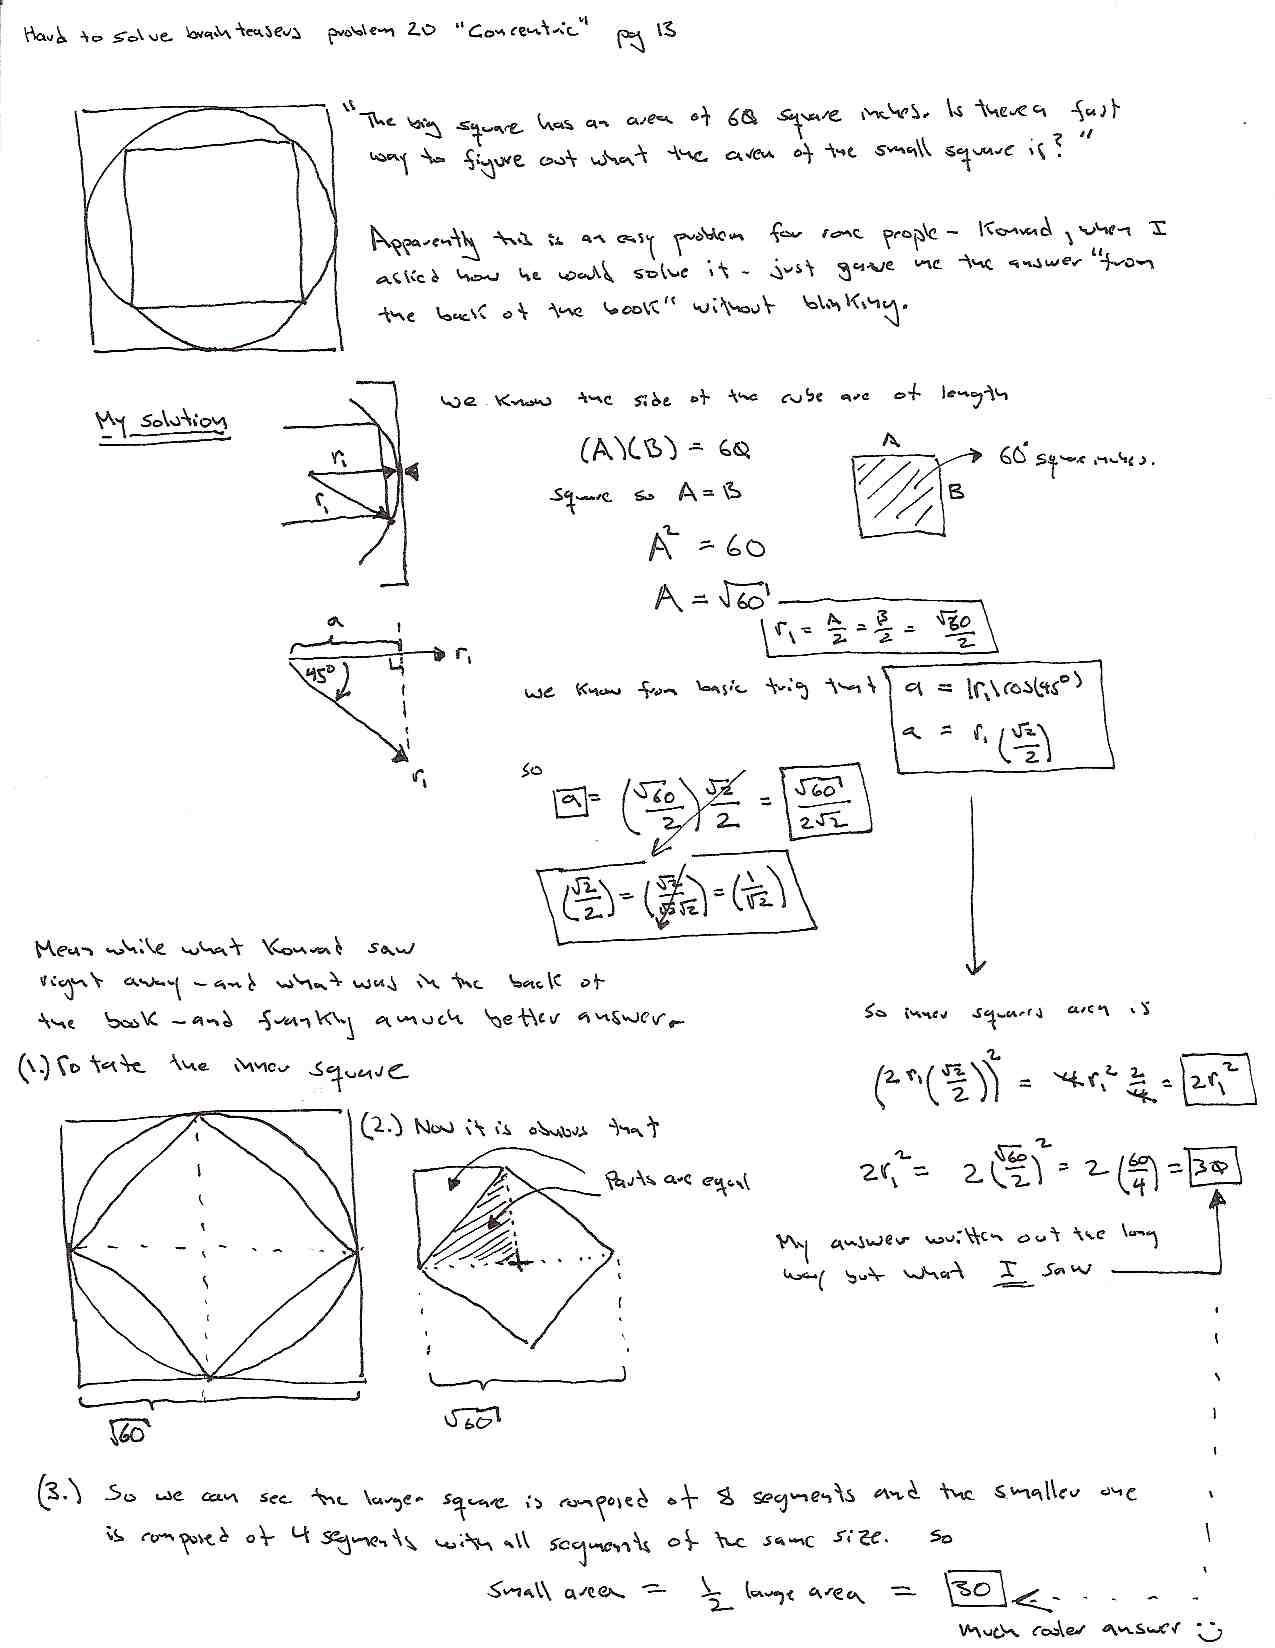 Hard to solve brain teasers problem 20 "Concentric" pg 13
"The big square has an area of 60 square inches. Is there a fast
way to figure out what the area of the small square is?"
Apparently this is an easy problem for some people - Konrad, when I
asked how he would solve it - just gave me the answer "from
the back of the book" without blinking.
My solution
we know the side of the cube are of length
(A)(B) = 60
square so A = B
A² = 60
A = √60
A
B
60 square inches.
r₁
r₁
r₁ = A/2 = B/2 = √60/2
a
45°
r₁
r₁
we know from basic trig that
a = |r₁|cos(45°)
a = r₁(√2/2)
so
a = (√60/2)√2/2 = √60/2√2
(√2/2) = (√2/√2√2) = (1/√2)
Mean while what Konrad saw
right away - and what was in the back of
the book - and frankly a much better answer.
(1.) rotate the inner square
√60
(2.) Now it is obvious that
Parts are equal
√60
so inner squares area is
(2r₁(√2/2))² = 4r₁² 2/4 = 2r₁²
2r₁² = 2(√60/2)² = 2(60/4) = 30
My answer written out the long
way but what I saw
(3.) So we can see the larger square is composed of 8 segments and the smaller one
is composed of 4 segments with all segments of the same size. so
small area = 1/2 large area = 30
Much cooler answer :)